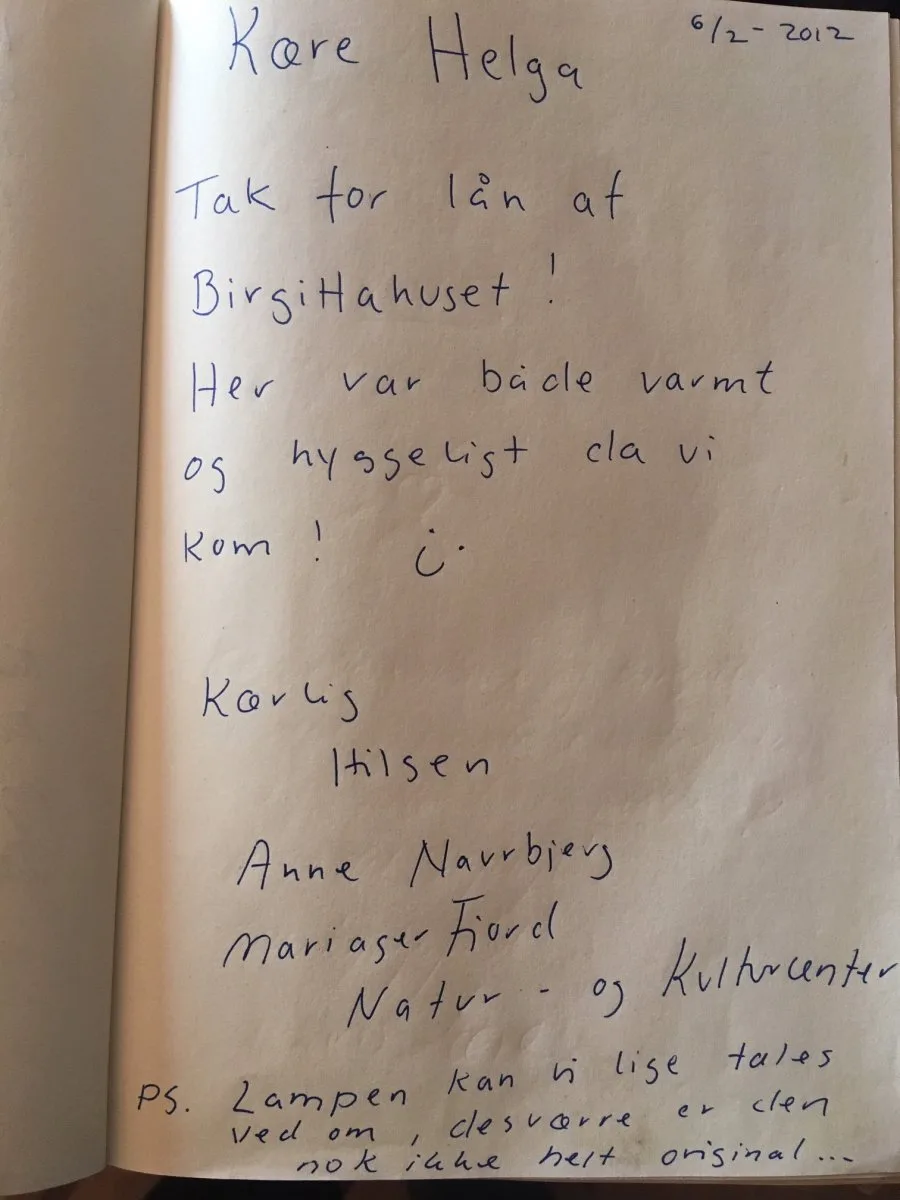 6/2 - 2012
Kære Helga
Tak for lån af
Birgittahuset !
Her var både varmt
og hyggeligt da vi
kom !
Kærlig
Hilsen
Anne Navrbjerg
Mariager Fjord
Natur - og Kulturcenter
PS. Lampen kan vi lige tales
ved om, desværre er den
nok ikke helt original...